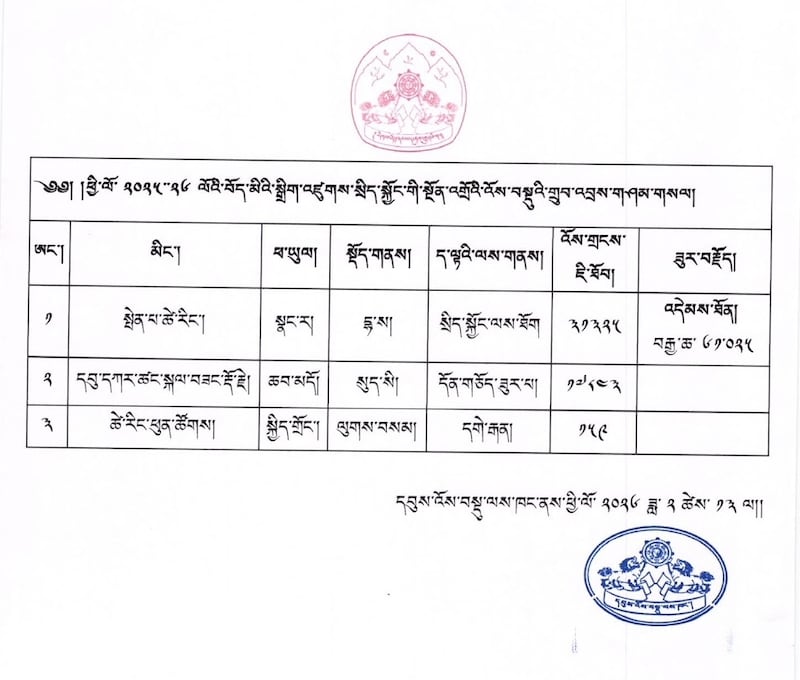 ༄༅། །ཕྱི་ལོ་ ༢༠༢༥-༢༦ ལོའི་བོད་མིའི་སྒྲིག་འཛུགས་སྲིད་སྐྱོང་གི་སྔོན་འགྲོའི་འོས་བསྡུའི་གྲུབ་འབྲས་གཤམ་གསལ།
ཨང་། མིང་། ཕ་ཡུལ། སྡོད་གནས། ད་ལྟའི་ལས་གནས། འོས་གྲངས་ཇི་ཐོབ། ཟུར་བརྗོད།
༡ སྤེན་པ་ཚེ་རིང་། སྣང་ར། དྷ་ས། སྲིད་སྐྱོང་ལས་ཐོག ༣༡༣༢༥ འདེམས་ཐོན། བརྒྱ་ཆ་ ༦༡.༠༢༥
༢ དབུ་དཀར་ཚང་སྐལ་བཟང་རྡོ་རྗེ། ཆབ་མདོ། སུད་སི། དོན་གཅོད་ཟུར་པ།
༣ ཚེ་རིང་ཕུན་ཚོགས། སྐྱིད་གྲོང་། ལུགས་བསམ། དགེ་རྒན། ༡༥༩
དབུས་འོས་བསྡུ་ལས་ཁང་ནས་ཕྱི་ལོ་ ༢༠༢༦ ཟླ་ ༢ ཚེས་ ༡༣ ལ།།
དབུས་འོས་བསྡུ་ལས་ཁང་།